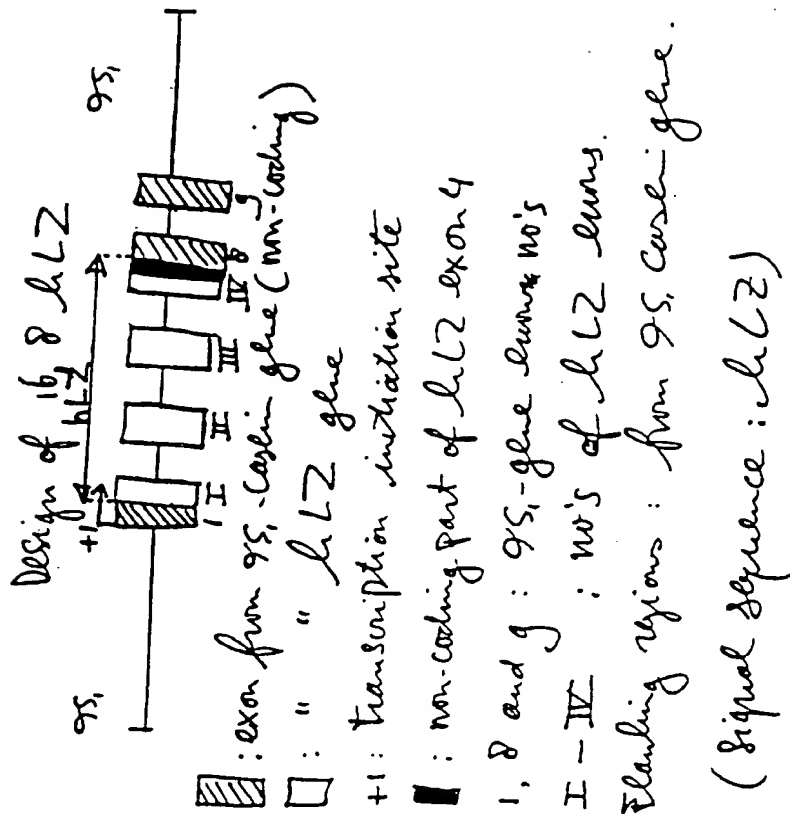 Design of 16, 8 hLZ
hLZ
αS₁
+1
αS₁
1 I II III IV 8 9
: exon from αS₁-casein gene (non-coding)
: " " hLZ gene
+1 : transcription initiation site
: non-coding part of hLZ exon 4
1, 8 and 9 : αS₁-gene exons no's
I – IV : no's of hLZ exons.
Flanking regions : from αS₁ casein gene.
(signal sequence : hLZ)